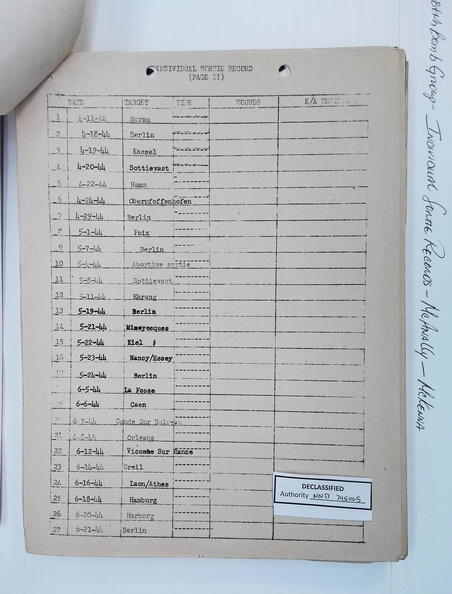 INDIVIDUAL SORTIE RECORD
(PAGE II)
DATE TARGET TIME WOUNDS E/A
1 4-11-44 Sorau
2 4-18-44 Berlin
3 4-19-44 Kassel
4 4-20-44 Sottievast
5 4-22-44 Hamm
6 4-24-44 Oberpfoffenhofen
7 4-29-44 Berlin
8 5-1-44 Poix
9 5-7-44 Berlin
10 5-4-44 Abortive sortie
11 5-8-44 Sottievast
12 5-11-44 Ehrang
13 5-19-44 Berlin
14 5-21-44 Mimeyecques
15 5-22-44 Kiel
16 5-23-44 Nancy/Essey
17 5-24-44 Berlin
6-5-44 La Fosse
19 6-6-44 Caen
6-7-44 Conde Sur Noireau
21 6-8-44 Orleans
22 6-12-44 Vicombe Sur Rance
23 6-14-44 Creil
24 6-16-44 Laon/Athes
25 6-18-44 Hamburg
26 6-20-44 Harburg
27 6-21-44 Berlin
DECLASSIFIED
Authority NND 745005
Bomb Group - Individual Sortie Records - McAnally - McKenna